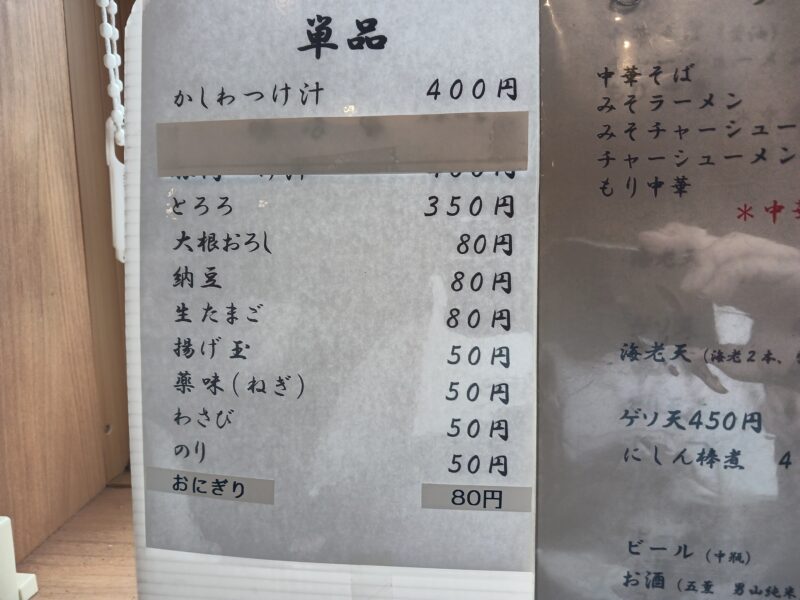 単品
かしわつけ汁 400円
とろろ 350円
大根おろし 80円
納豆 80円
生たまご 80円
揚げ玉 50円
薬味(ねぎ) 50円
わさび 50円
のり 50円
おにぎり 80円
中華そば
みそラーメン
みそチャーシュー
チャーシューメン
もり中華
*中華
海老天(海老2本、
ゲソ天450円
にしん棒煮 4
ビール(中瓶)
お酒(五重 男山純米